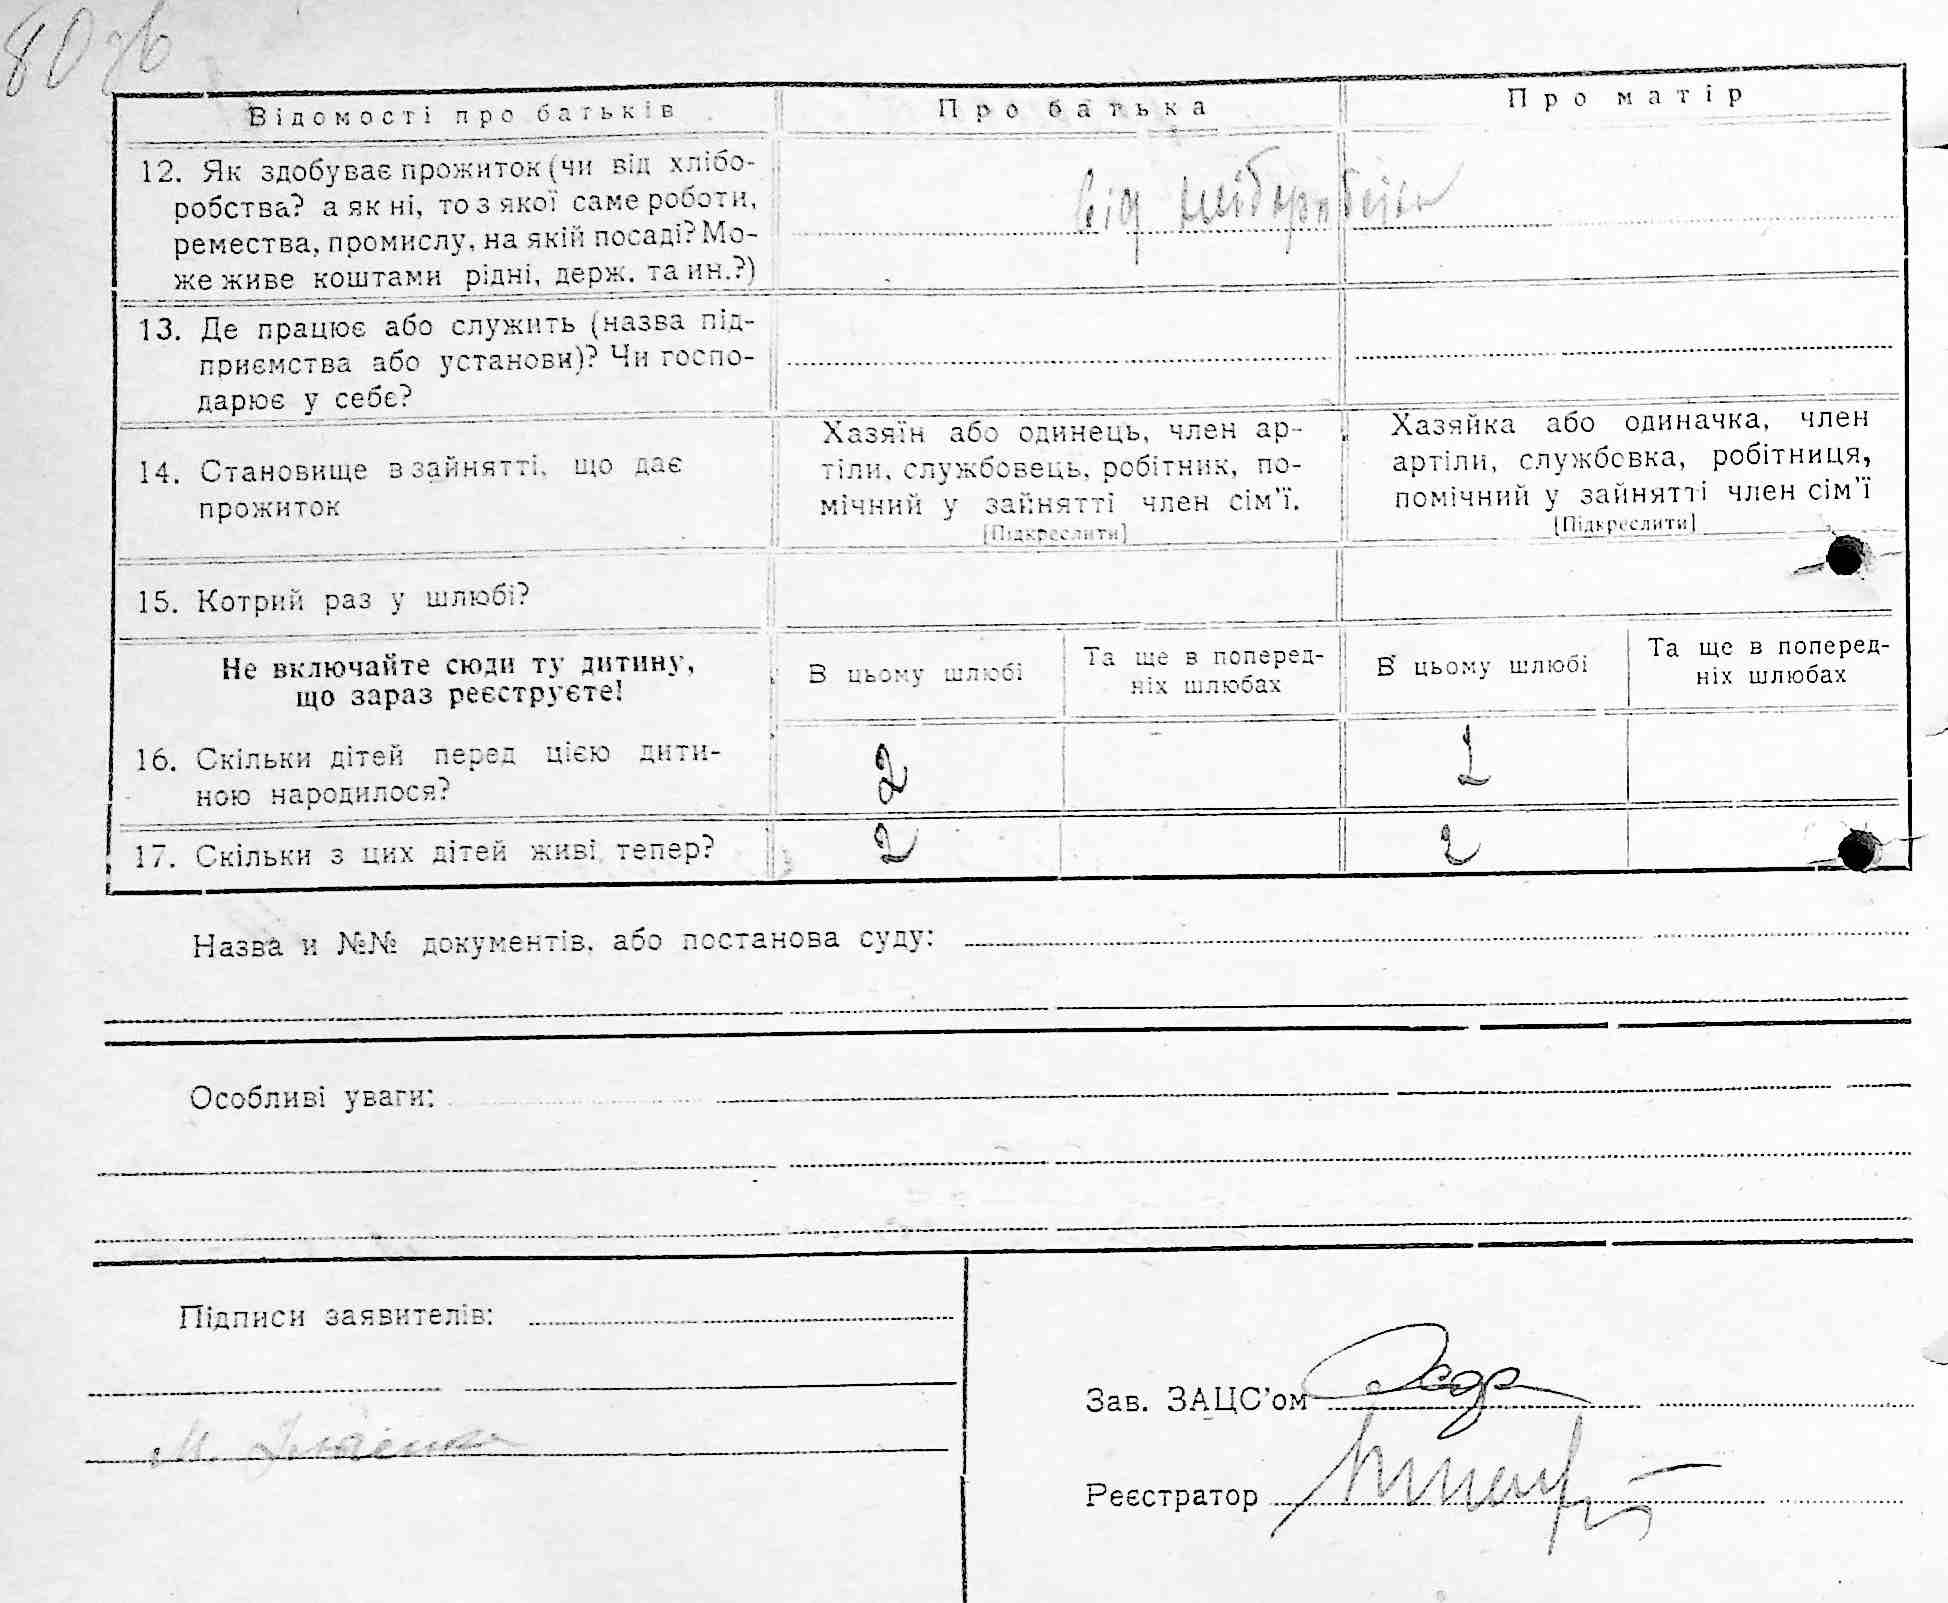 80 зв
Відомості про батьків
Про батька
Про матір
12. Як здобуває прожиток (чи від хлібо-
робства? а як ні, то з якої саме роботи,
ремества, промислу, на якій посаді? Мо-
же живе коштами рідні, держ. та ин.?)
від хліборобства
13. Де працює або служить (назва під-
приємства або установи)? Чи госпо-
дарює у себе?
14. Становище в зайнятті, що дає
прожиток
Хазяїн або одинець, член ар-
тіли, службовець, робітник, по-
мічний у зайнятті член сім'ї.
[Підкреслити]
Хазяйка або одиначка, член
артіли, службовка, робітниця,
помічний у зайнятті член сім'ї
[Підкреслити]
15. Котрий раз у шлюбі?
Не включайте сюди ту дитину,
що зараз реєструєте!
В цьому шлюбі
Та ще в поперед-
ніх шлюбах
В цьому шлюбі
Та ще в поперед-
ніх шлюбах
16. Скільки дітей перед цією дити-
ною народилося?
2
2
17. Скільки з цих дітей живі тепер?
2
2
Назва и №№ документів, або постанова суду:
Особливі уваги:
Підписи заявителів:
М.
Зав. ЗАЦС'ом
Реєстратор